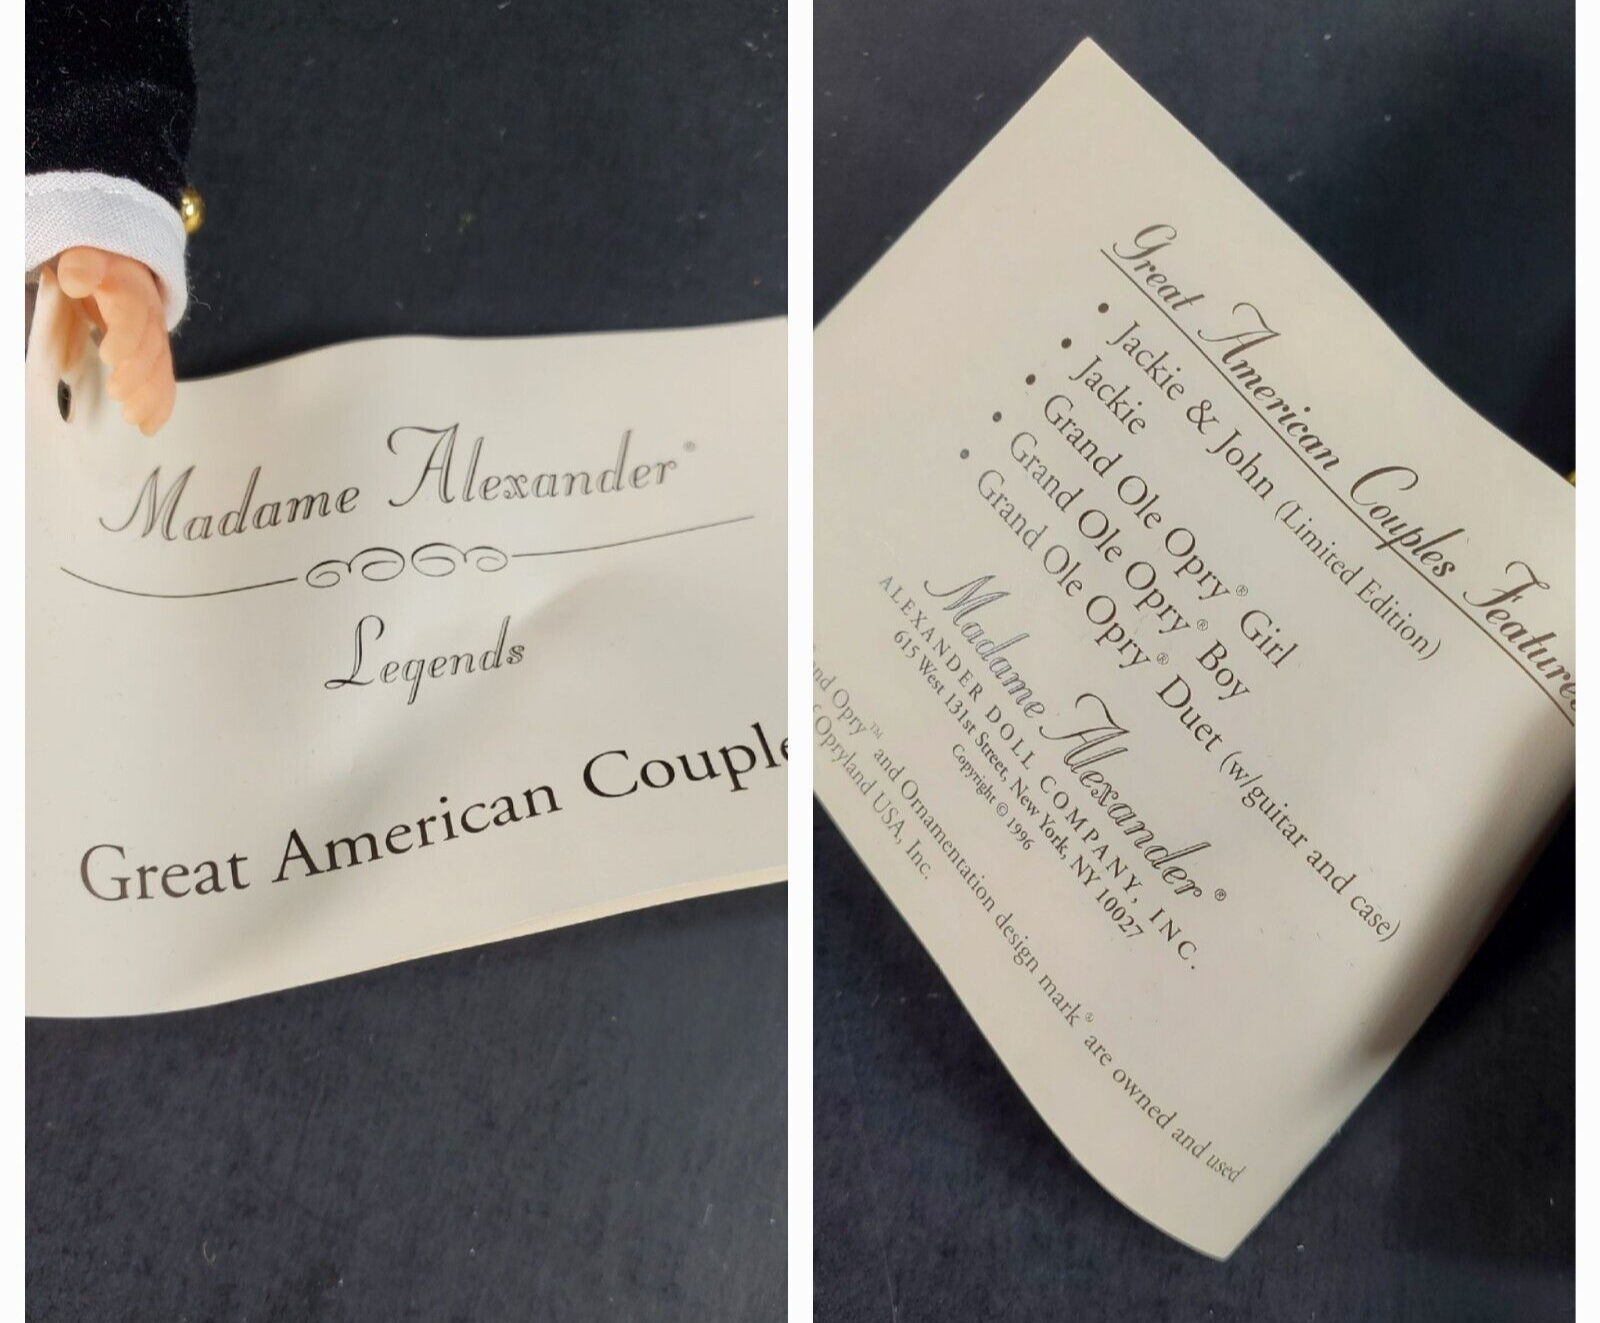 Madame Alexander®
Legends
Great American Couple
Great American Couples Feature
• Jackie & John (Limited Edition)
• Jackie
• Grand Ole Opry® Girl
• Grand Ole Opry® Boy
• Grand Ole Opry® Duet (w/guitar and case)
Madame Alexander®
ALEXANDER DOLL COMPANY, INC.
615 West 131st Street, New York, NY 10027
Copyright © 1996
Opry™ and Ornamentation design mark® are owned and used
Opryland USA, Inc.